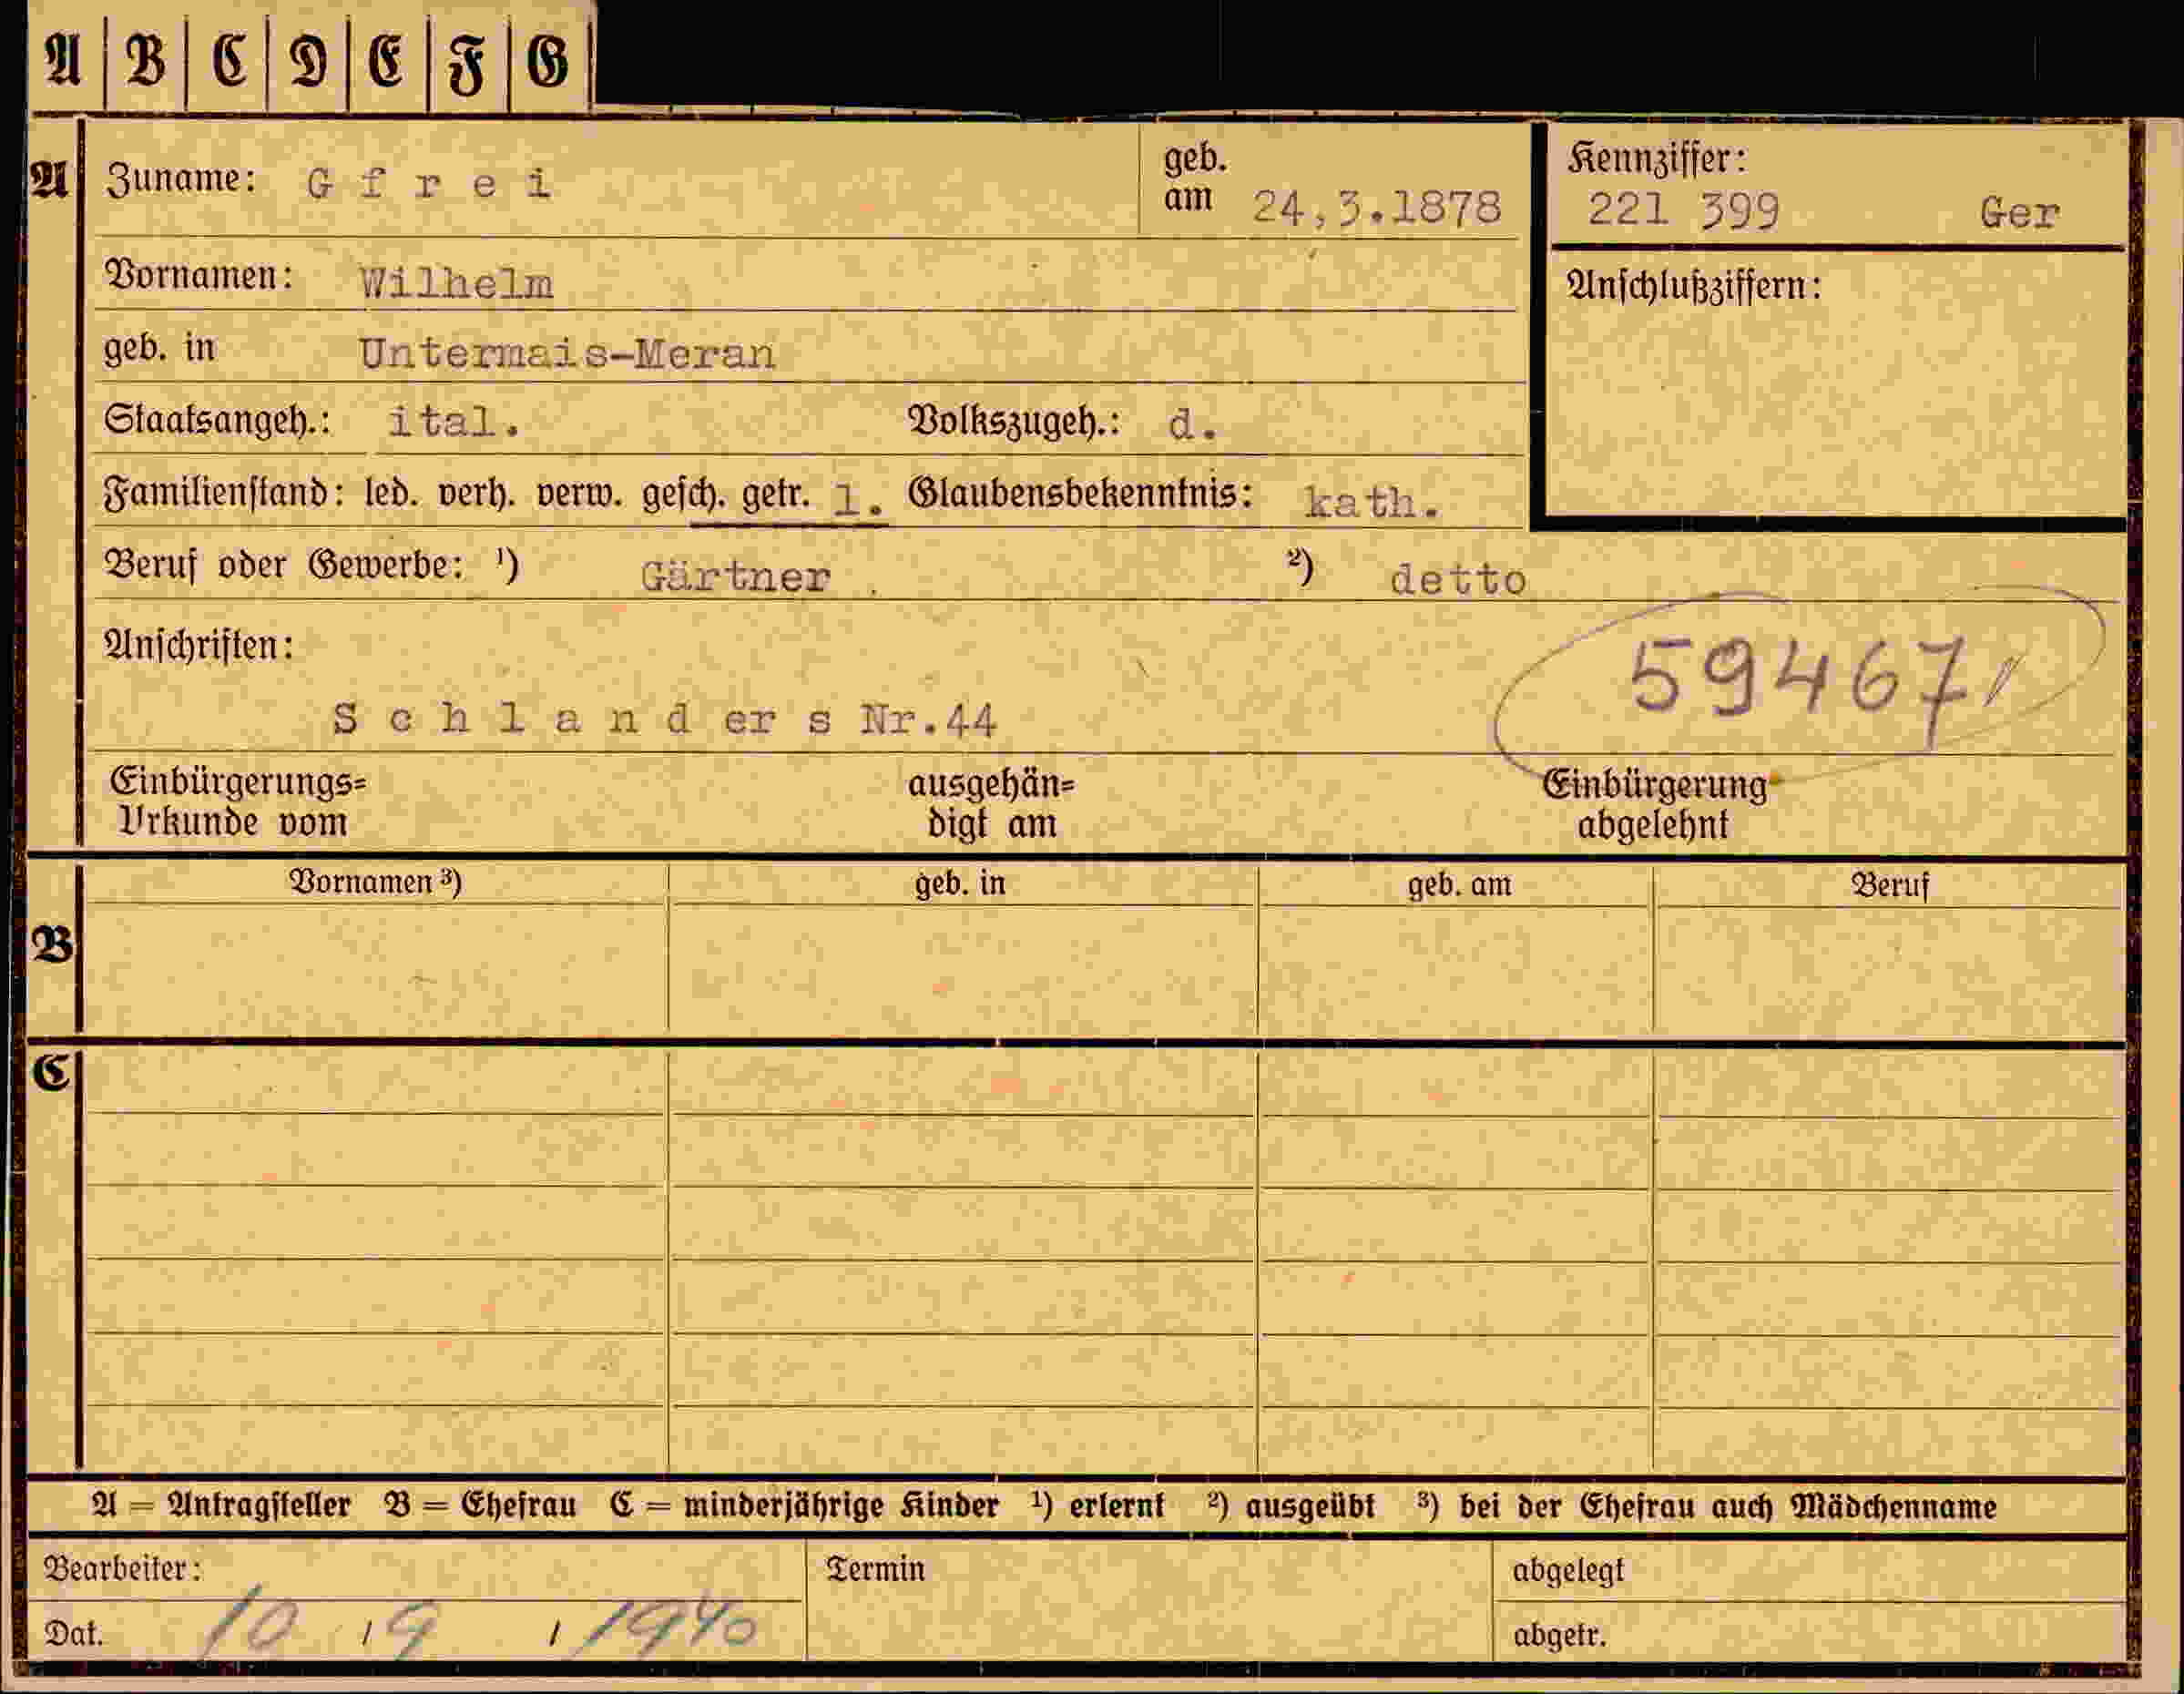 A B C D E F G
A Zuname: G f r e i geb. am 24,3.1878 Kennziffer: 221 399 Ger
Vornamen: Wilhelm Anschlußziffern:
geb. in Untermais-Meran
Staatsangeh.: ital. Volkszugeh.: d.
Familienstand: led. verh. verw. gesch. getr. l. Glaubensbekenntnis: kath.
Beruf oder Gewerbe: ¹) Gärtner ²) detto
Anschriften:
59467
S c h l a n d er s Nr.44
Einbürgerungs= ausgehän= Einbürgerung
Urkunde vom digt am abgelehnt
Vornamen ³) geb. in geb. am Beruf
B
C
A = Antragsteller B = Ehefrau C = minderjährige Kinder ¹) erlernt ²) ausgeübt ³) bei der Ehefrau auch Mädchenname
Bearbeiter: Termin abgelegt
Dat. 10 / 9 / 1940 abgetr.